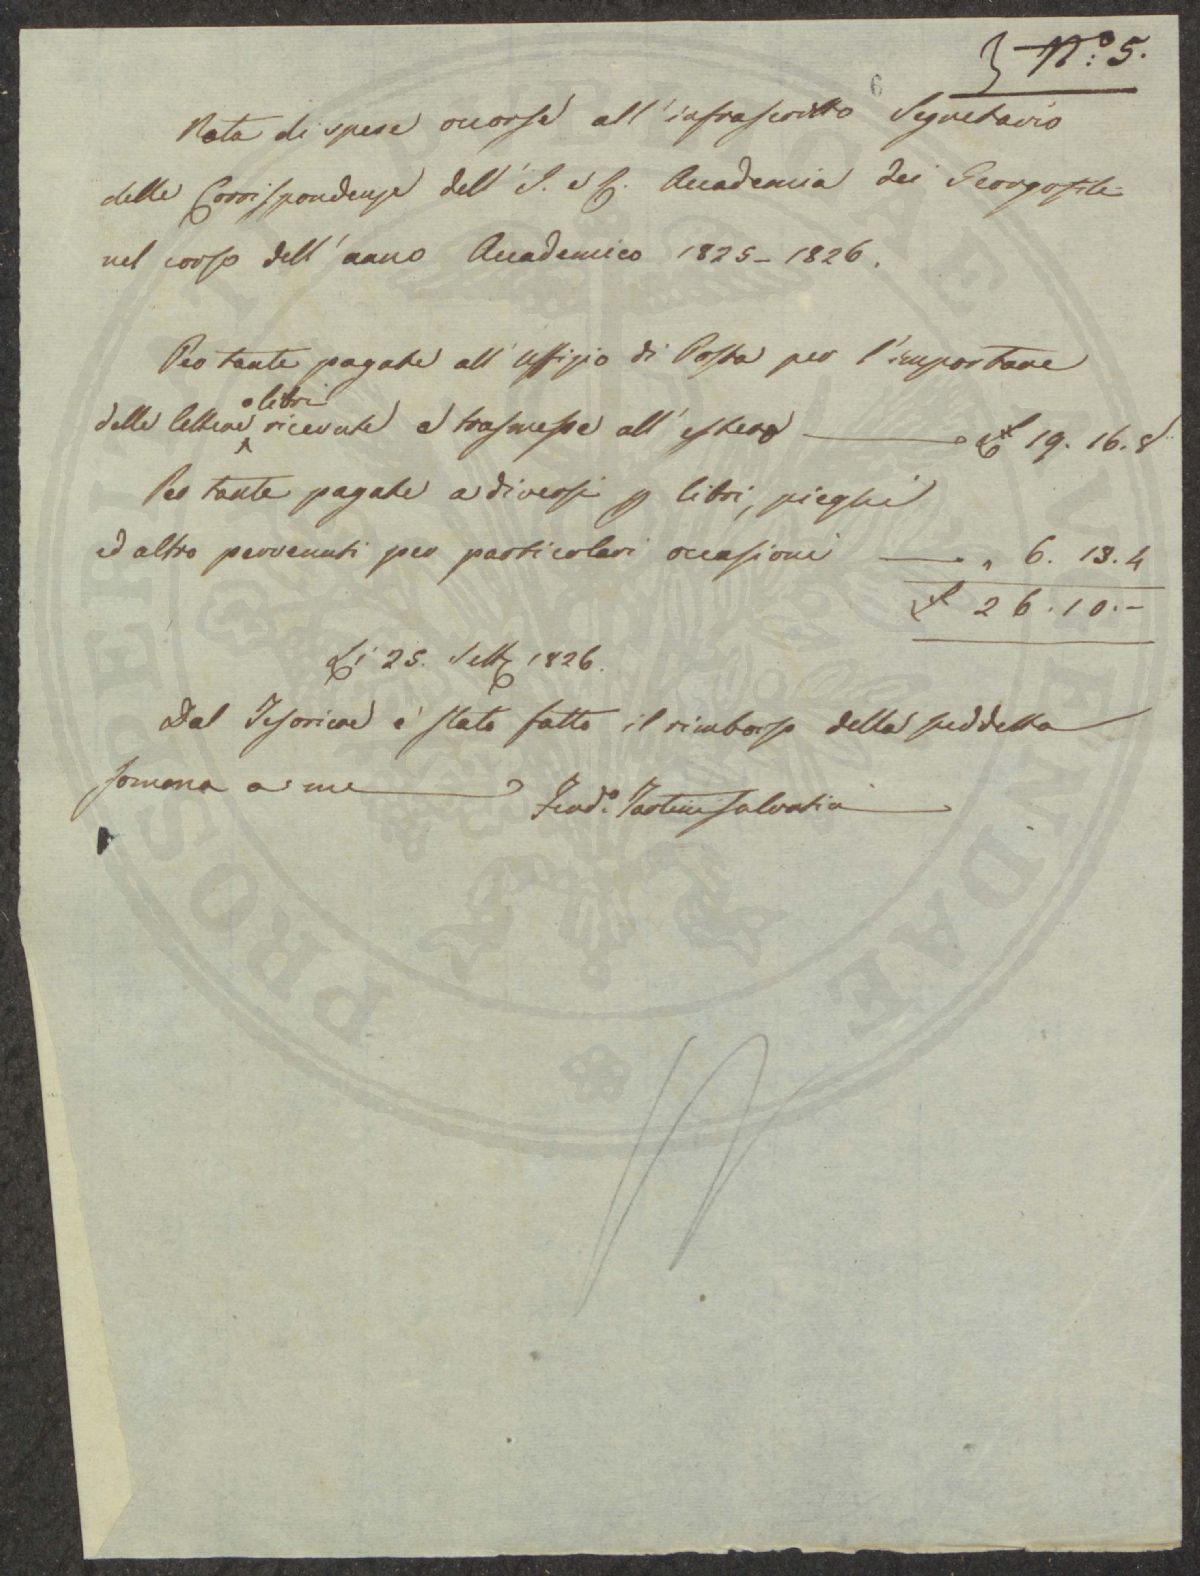 N.º 5.
6
Nota di spese occorse all'infrascritto Segretario
delle Corrispondenze dell' I. e R. Accademia dei Georgofili
nel corso dell'anno Accademico 1825-1826.
Per tante pagate all'Uffizio di Posta per l'importare
o libri
delle lettere ricevute e trasmesse all'estero £ 19. 16. 8
Per tante pagate a diversi p libri, pieghi
ed altro pervenuti per particolari occasioni " 6. 13. 4
£ 26. 10. -
Li 25. Sett.e 1826.
Dal Tesoriere è stato fatto il rimborso della suddetta
somma a me Ferd.º Tartini Salvatici
PROSPERITATI PUBLICAE AUGENDAE